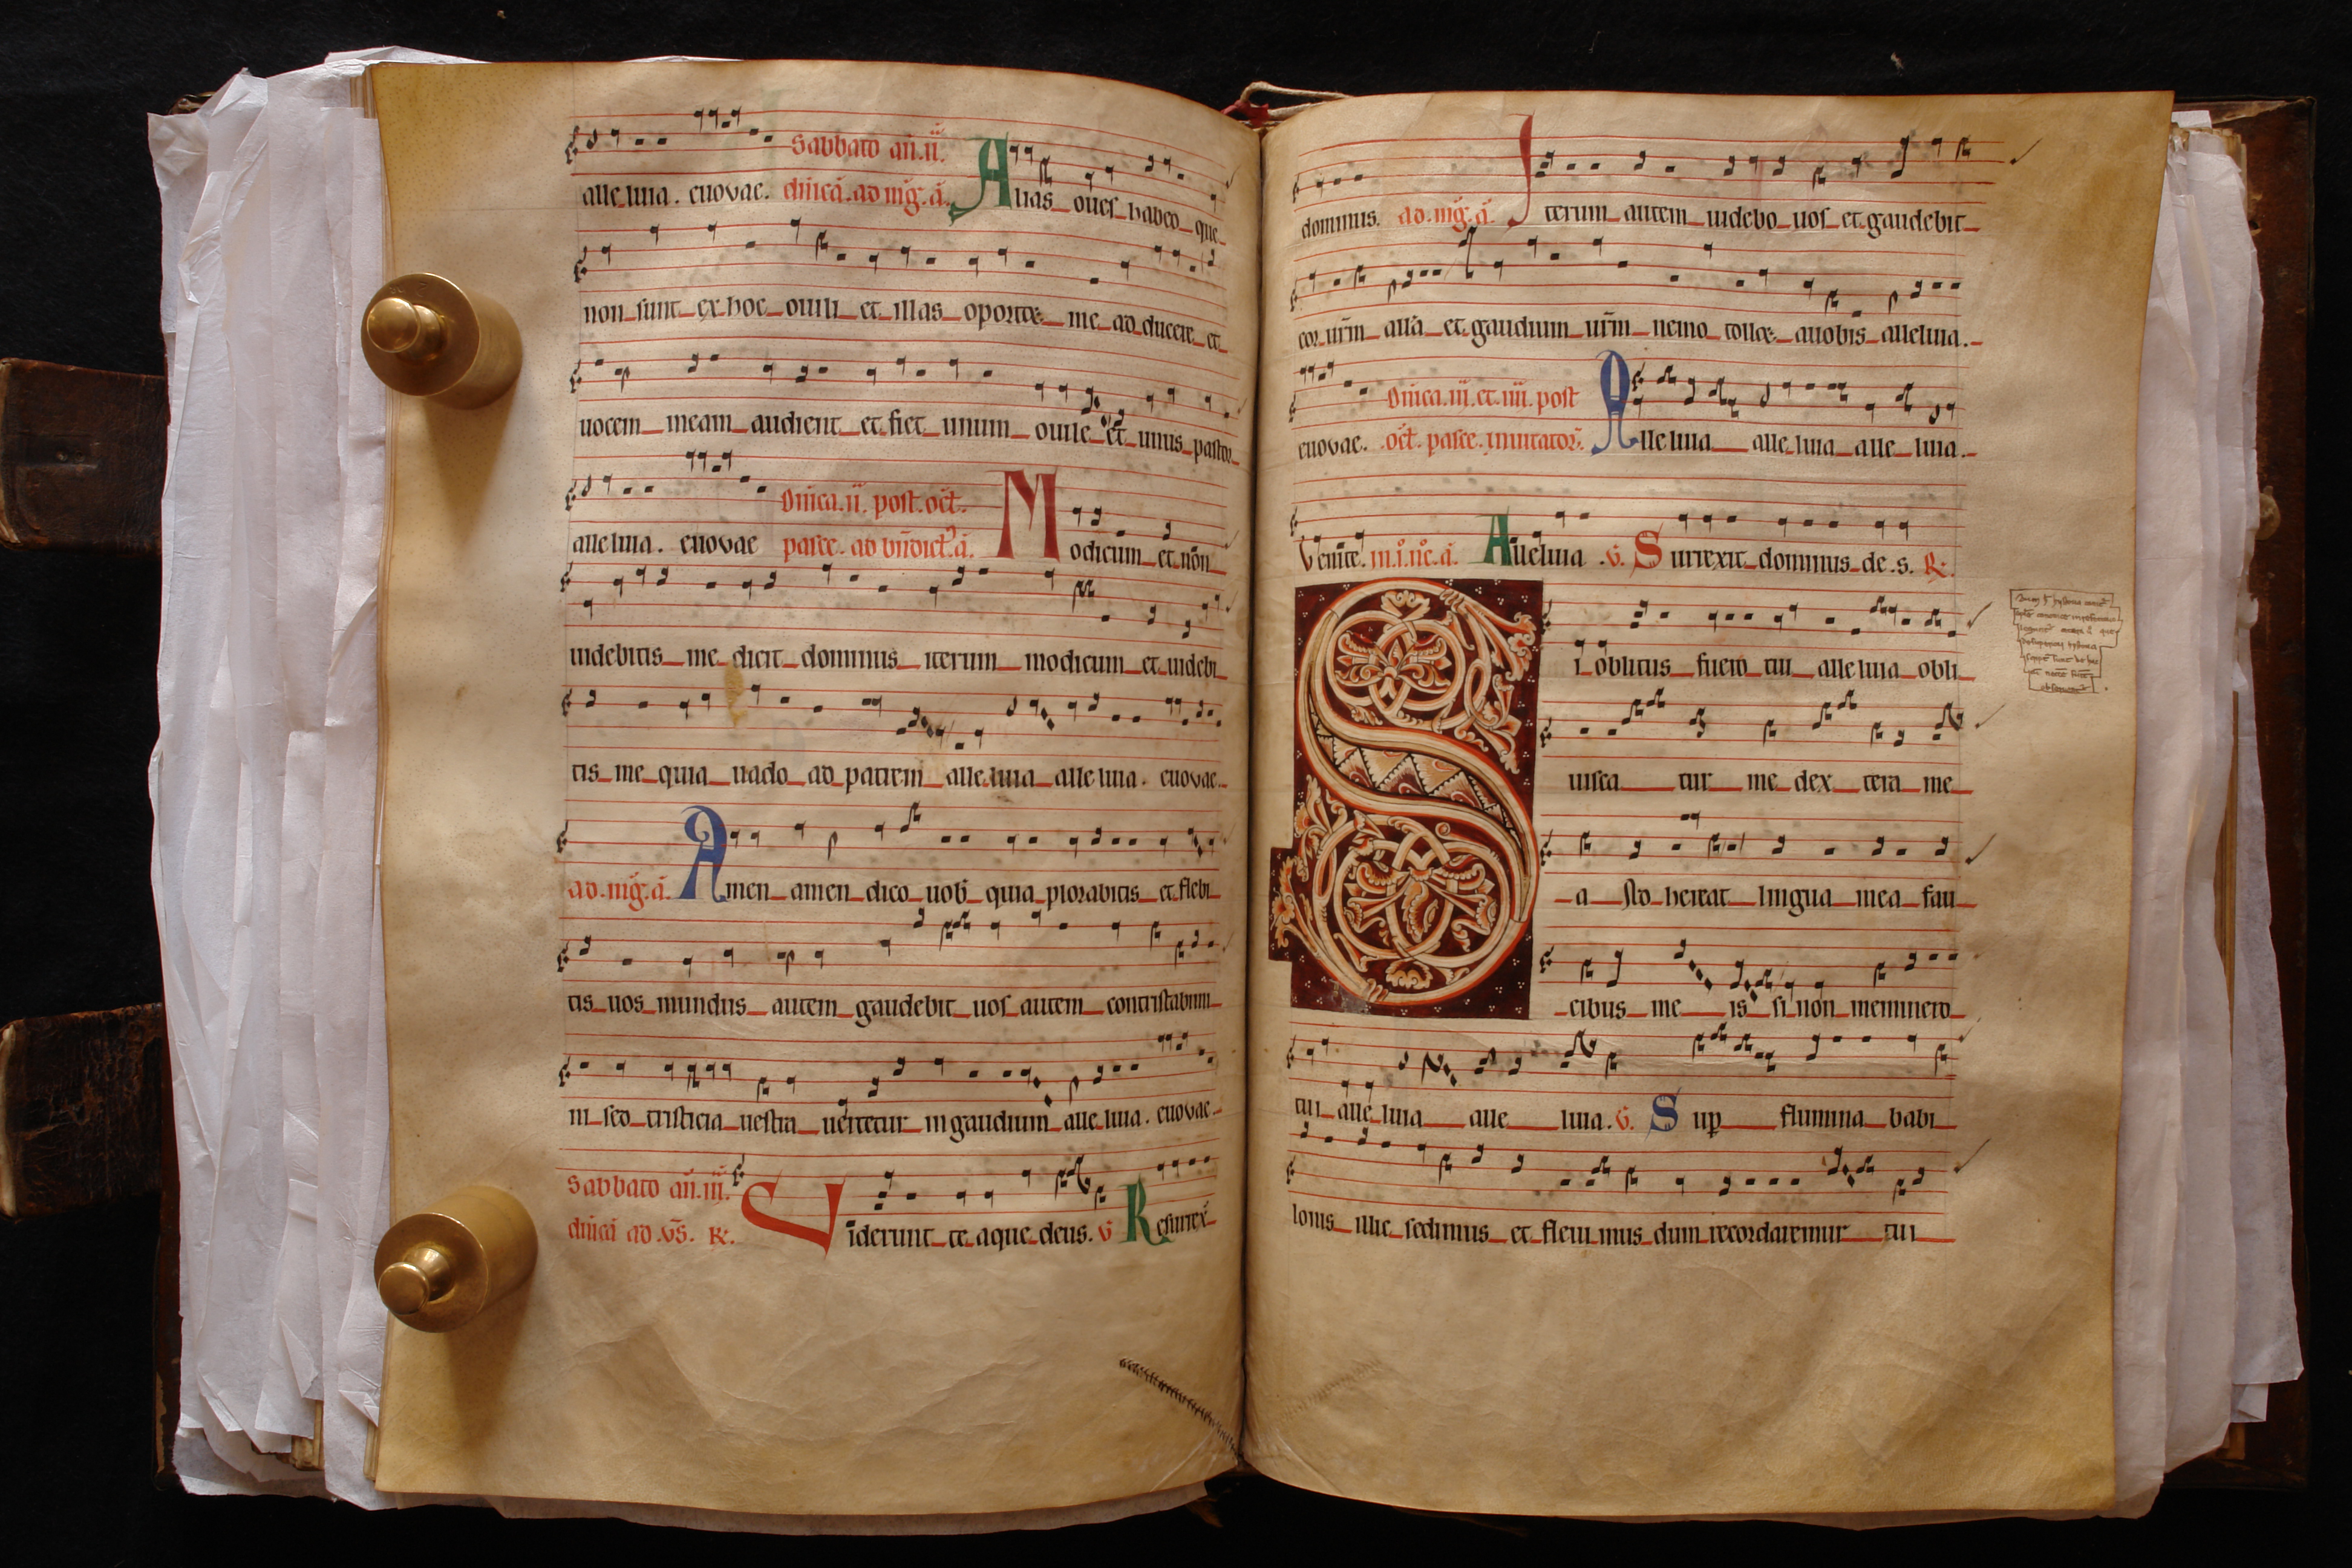 alle luia. euovae. Sabbato añ.ii. dñicā. ad mḡ. ā. Alias oues habeo que
non sunt ex hoc ouili et illas oportet me ad ducere et
uocem meam audient et fiet unum ouile et unus pastor
alle luia. euovae Dñica.ii. post. oct̄. pasce. ad bñdict̄. ā. Modicum et nōn
uidebitis me dicit dominus iterum modicum et uidebi
tis me quia uado ad patrem alle luia alle luia. euovae.
ad. mḡ. ā. Amen amen dico uob̄ quia plorabitis et flebi
tis uos mundus autem gaudebit uos autem contristabimi
ni sed tristicia uestra uertetur in gaudium alle luia. euovae
Sabbato añ.iii.
dñicā ad .v̄s. R. Viderunt te aque deus. V Resurrex̄
dominus. ad. mḡ. ā. Iterum autem uidebo uos et gaudebit
cor ur̄m all'a et gaudium ur̄m nemo tollet auobis alleluia.
euovae. Dñica.iii. et.iiii. post oct̄. pasce. inuitator̄. Alleluia alle luia alle luia.
Venite. Alleluia .V. Surrexit dominus de .s. R.
Si oblitus fuero tui alle luia obli
uisca tur me dex tera me
a Ado hereat lingua mea fau
cibus me is si non meminero
tui alle luia alle luia. V. Sup flumina babi
lonis illic sedimus et fleui mus dum recordaremur tui